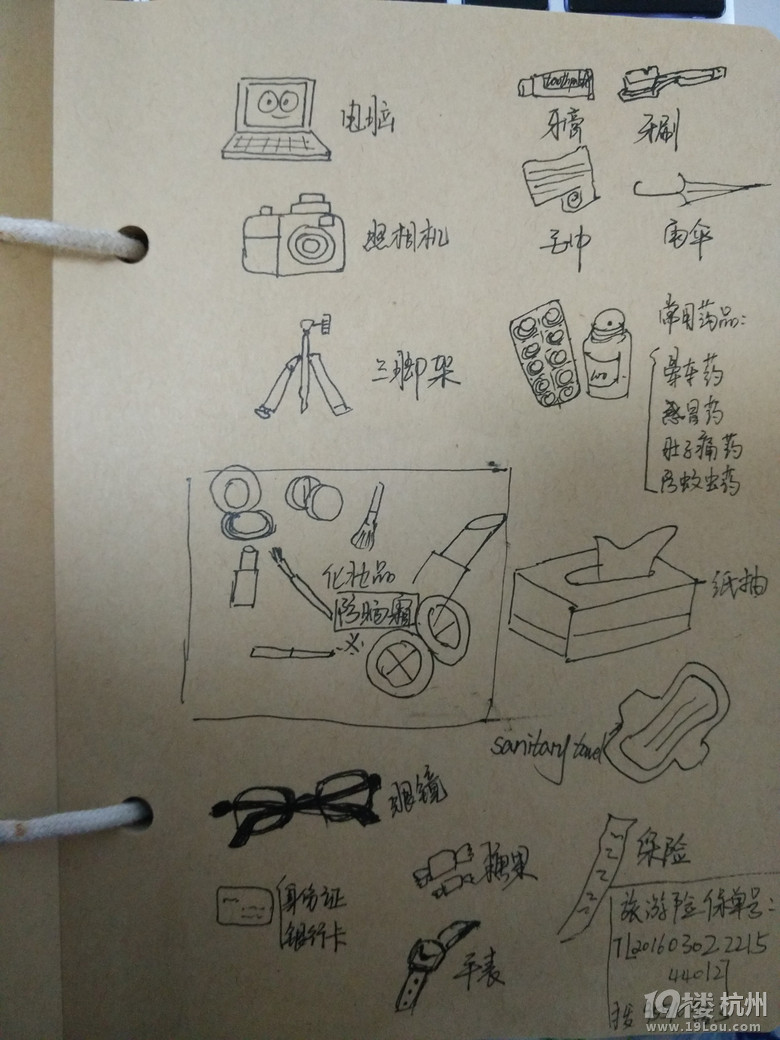 电脑
toothpaste
牙膏
牙刷
照相机
毛巾
雨伞
三脚架
常用药品:
晕车药
感冒药
肚子痛药
防蚊虫药
化妆品
防晒霜
纸抽
sanitary towel
眼镜
糖果
保险
身份证
银行卡
手表
旅游险保单号:
TL201603022215
440127
19楼 杭州
www.19Lou.com